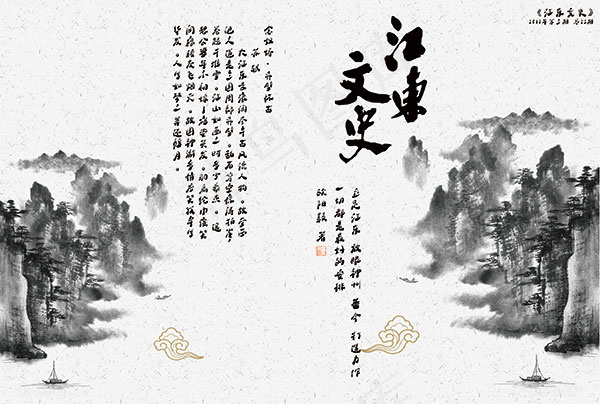 《江东文史》
江東
文史
立足江东 放眼神州 荟今 打造力作
一切都是最好的安排
欧阳毅 著
念奴娇·赤壁怀古
苏轼
大江东去浪淘尽千古风流人物。故垒西
边人道是三国周郎赤壁。乱石穿空惊涛拍岸
卷起千堆雪。江山如画一时多少豪杰。遥
想公瑾当年小乔初嫁了雄姿英发。羽扇纶巾谈笑
间樯橹灰飞烟灭。故国神游多情应笑我早生
华发。人生如梦一尊还酹江月。